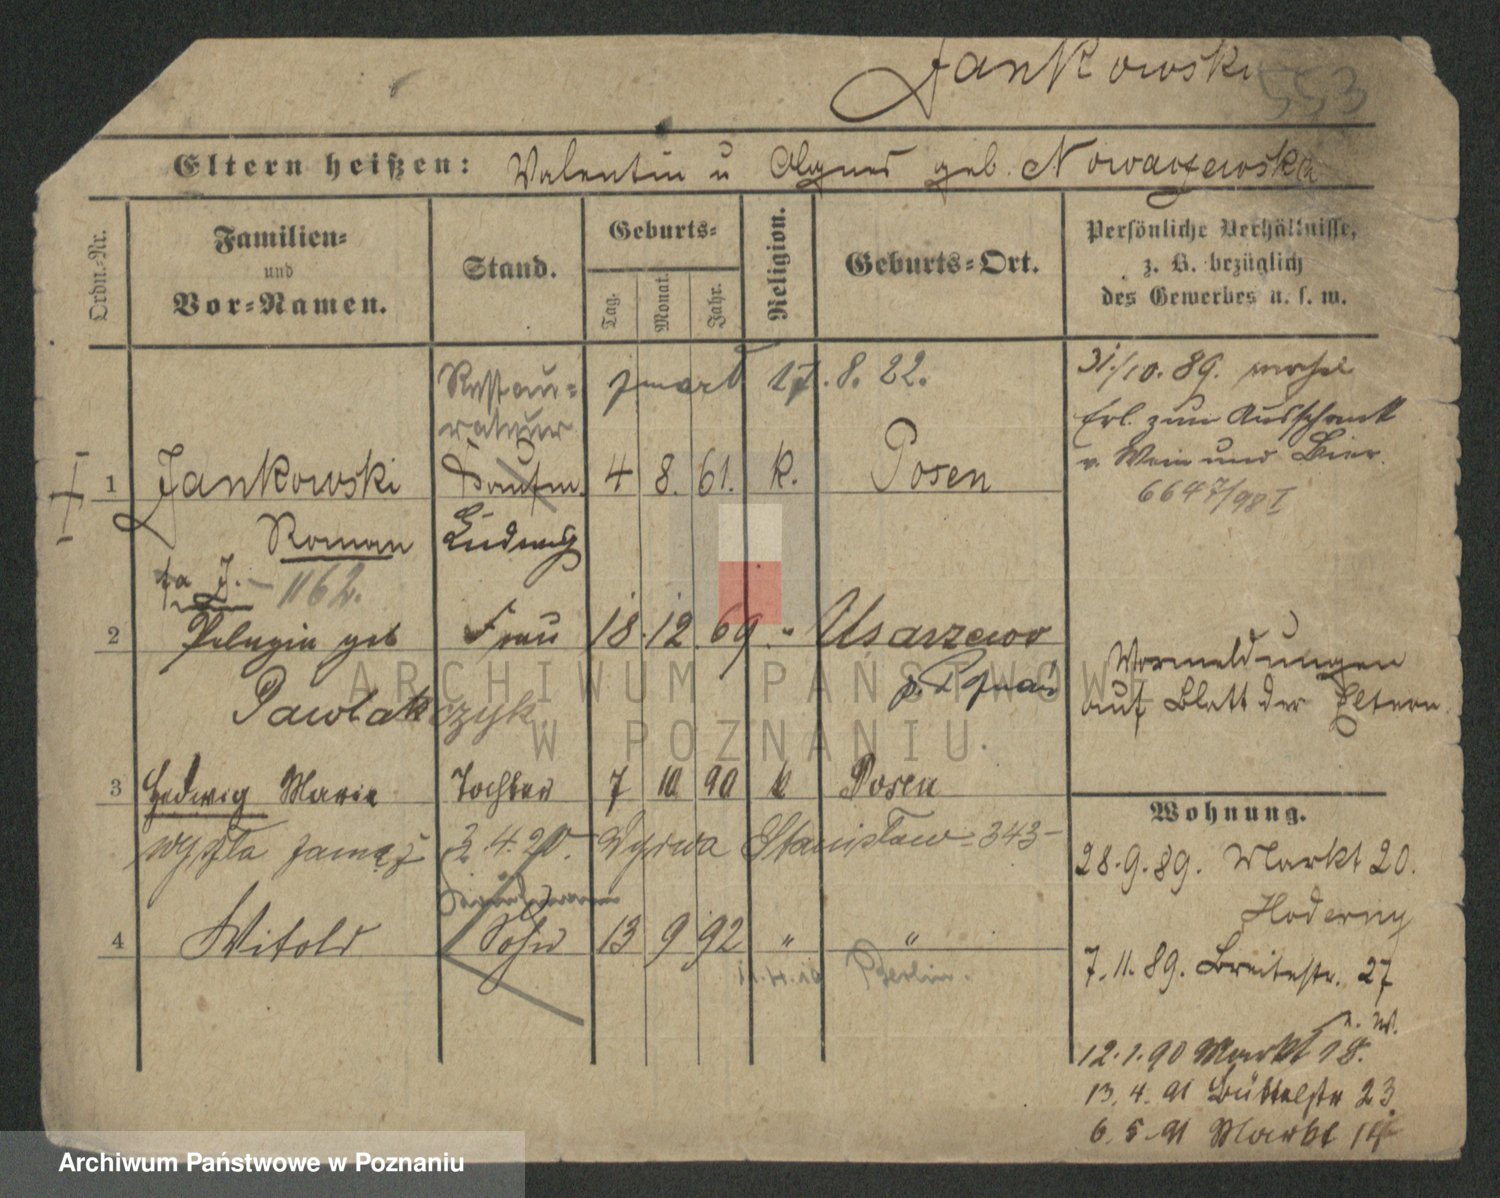 Jankowski
553
Eltern heißen: Valentin u Agnes geb. Nowaczewska
Ordn.-Nr.
Familien-
und
Vor-Namen.
Stand.
Geburts-
Tag.
Monat.
Jahr.
Religion.
Geburts-Ort.
Persönliche Verhältnisse,
z. B. bezüglich
des Gewerbes u. s. w.
Restau-
rateur
zmarł 17. 8. 22.
1 Jankowski Kaufm. 4 8. 61. k. Posen
Roman
1162.
2 Pelagia geb Frau 18 12 69 " Usarzewo
Pawlakczyk
3 Hedwig Marie Tochter 7 10 90 k Posen
wyszła zamąż 3.4.20. Wyrwa Stanisław-343-
4 Witold Sohn 13 9 92 " "
Berlin.
31./10. 89.
Erl. zum Ausschank
v. Wein und Bier.
6647/98 I
Vormeldungen
auf Blatt der Eltern.
Wohnung.
28.9.89. Markt 20.
7.11.89. Breitestr. 27
12.1.90 Markt 18.
13.4.91 Büttelstr 23
6.5.91 Markt
ARCHIWUM PAŃSTWOWE
W POZNANIU
Archiwum Państwowe w Poznaniu